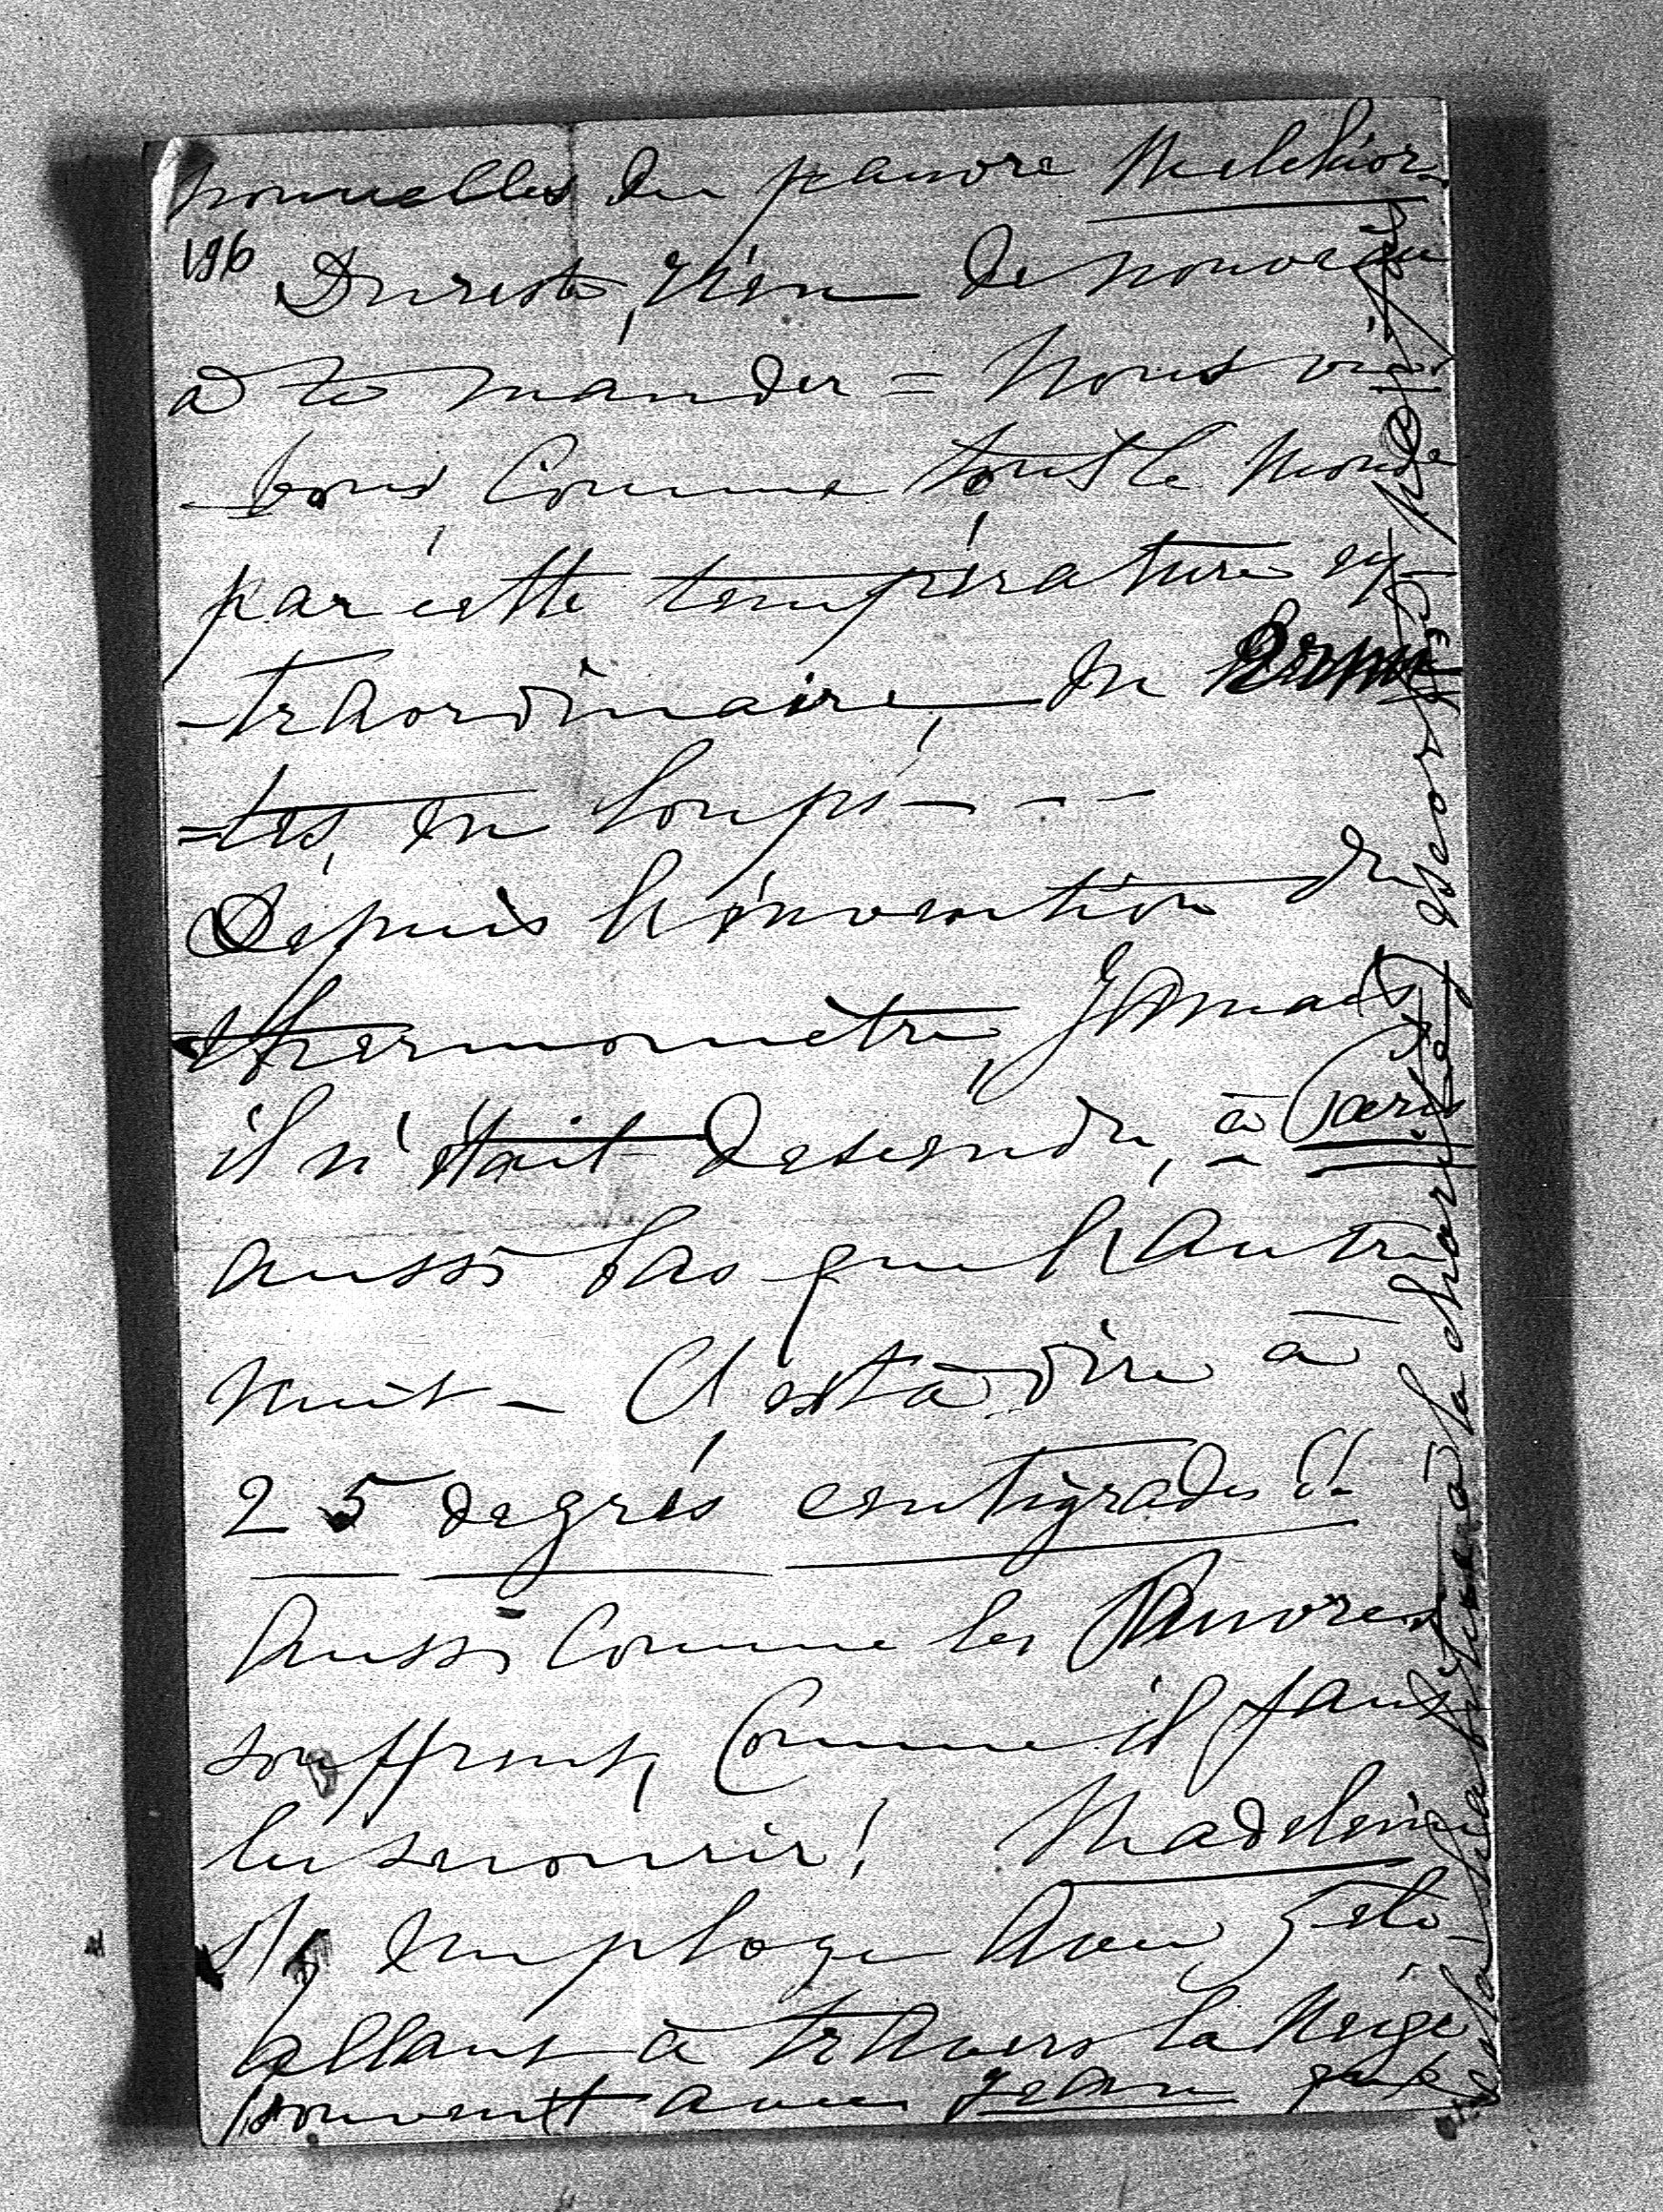 nouvelles du pauvre Melchior.
196
Du reste, rien de nouveau
à te mander = Nous vi-
-vons, comme tout le monde
par cette température ex-
-traordinaire, en
=tes, en soupi - - -
Depuis l'invention du
thermomètre, Jamais
il n'était descendu, à Paris
aussi bas que l'autre
nuit - C'est à dire à
25 degrés centigrades !!
Aussi comme les Pauvres
souffrent, Comme il faut
les secourir ! Madeleine
s'y employe avec zèle
allant à travers la Neige
souvent avec Jean que
cela habituera à la charité